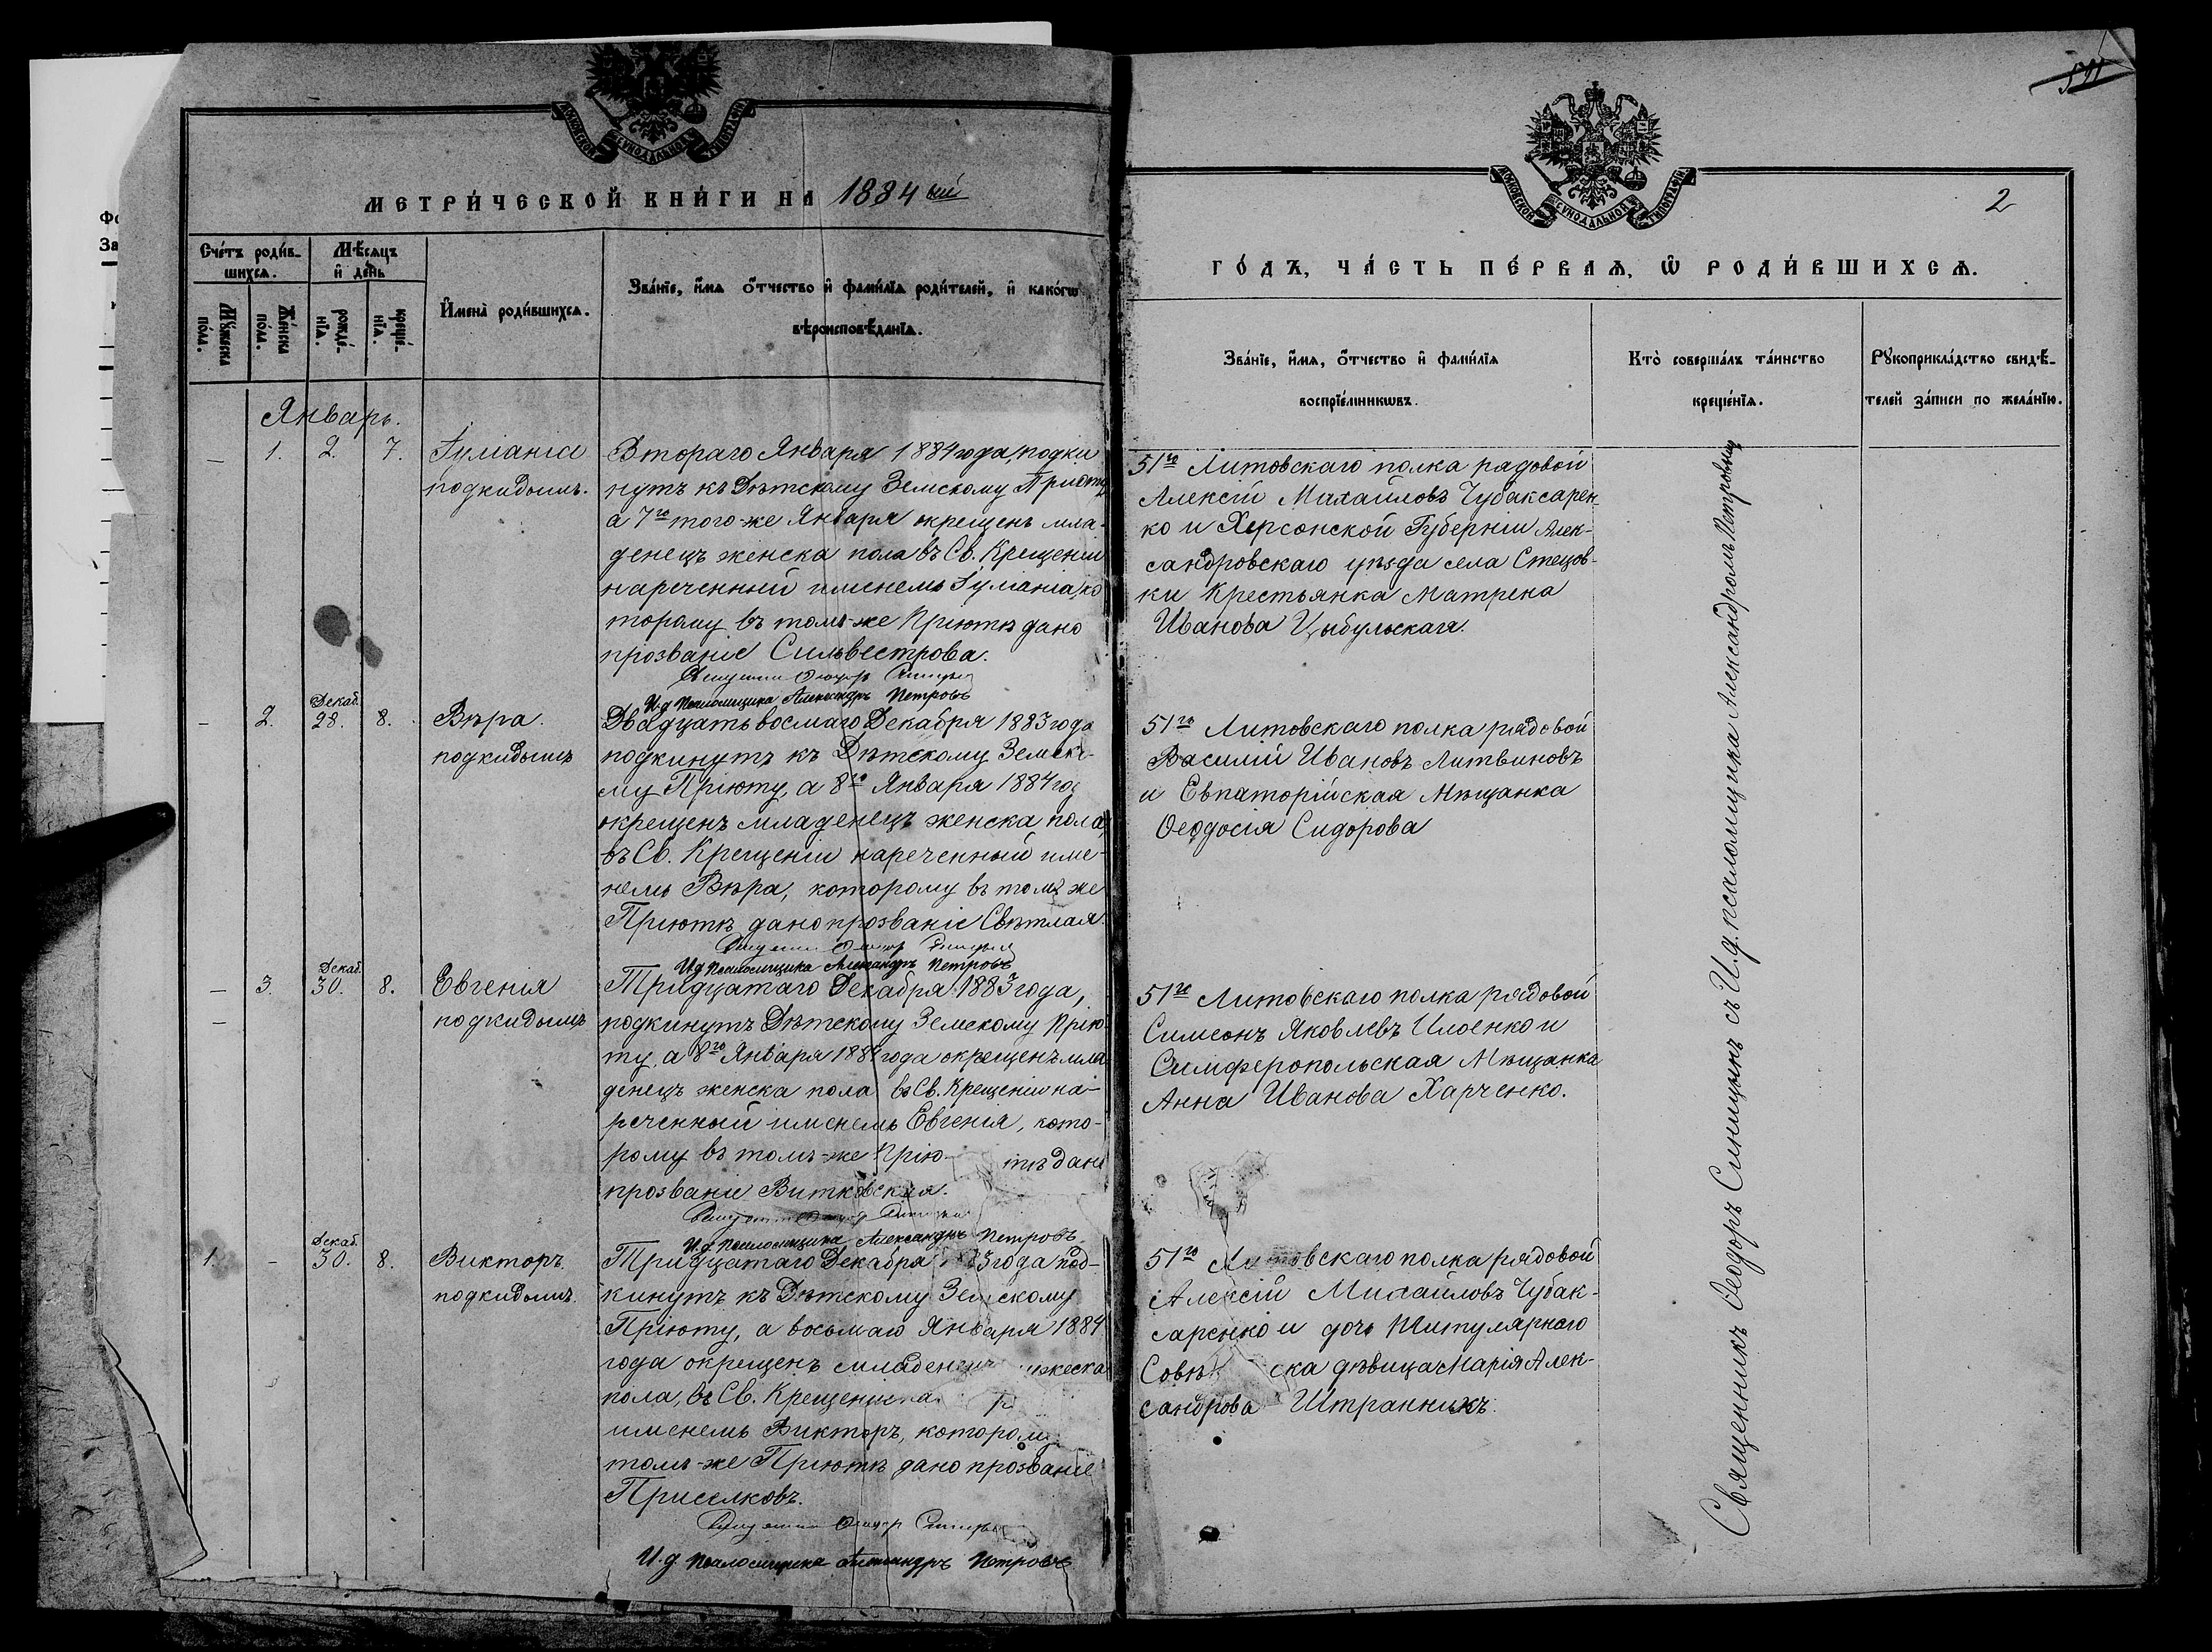 МЕТРИ́ЧЕСКОЙ КНИ́ГИ НА 1884 ый
Сче́тъ роди́в-
шихся.
Мѣ́сяцъ
и҆ де́нь
Му́жеска
по́ла.
Же́нска
по́ла.
рожде́-
нїя.
креще́-
нїя.
И҆мена̀ роди́вшихся.
Зва́нїе, и҆́мя ѻ҆́тчество и҆ фами́лїя роди́телей, и҆ како́гѡ
вѣроисповѣ́данїя.
Январь.
— 1. 2. 7.
Iуліанія
подкидышъ.
Втораго Января 1884 года, подки
нутъ къ Дѣтскому Земскому Пріюту
а 7го того-же Января окрещенъ мла-
денецъ женска пола въ Св. Крещеніи
нареченный именемъ Iуліанія, ко
торому въ томъ-же Пріютѣ дано
прозваніе Сильвестрова.
И.д. Псаломщика Александръ Петровъ
— 2. Декаб. 28. 8.
Вѣра.
подкидышъ
Двадцать восмаго Декабря 1883 года
подкинутъ къ Дѣтскому Земск-
му Пріюту, а 8го Января 1884 го
окрещенъ младенецъ женска пола,
въ Св. Крещеніи нареченный име-
немъ Вѣра, которому въ томъ же
Пріютѣ дано прозваніе Свѣтлая.
И.д. Псаломщика Александръ Петровъ
— 3. Декаб. 30. 8.
Евгенія
подкидышъ
Тридцатаго Декабря 1883 года,
подкинутъ Дѣтскому Земскому Прію
ту, а 8го Января 1884 года окрещенъ мла
денецъ женска пола въ Св. Крещеніи на-
реченный именемъ Евгенія, кото-
рому въ томъ-же Прію тѣ дано
прозваніе Витковская.
И.д. Псаломщика Александръ Петровъ.
1. — Декаб. 30. 8.
Викторъ.
подкидышъ.
Тридцатаго Декабря 83 года под-
кинутъ къ Дѣтскому Земскому
Пріюту, а восьмаго Января 1884
года окрещенъ младенецъ мжеска
пола, въ Св. Крещеніи на
именемъ Викторъ, котором
томъ-же Пріютѣ дано прозваніе
Приселковъ.
И.д. Псаломщика Александръ Петровъ
2
ГО́ДЪ, ЧА́СТЬ ПЕ́РВАЯ, Ѡ҆ РОДИ́ВШИХСЯ.
Зва́нїе, и҆́мя, ѻ҆́тчество и҆ фами́лїя
воспрїе́мникѡвъ.
Кто̀ соверша́лъ та́инство
креще́нїя.
Рꙋкоприкла́дство свидѣ́-
телей за́писи по жела́нїю.
51го Литовскаго полка рядовой
Алексій Михайловъ Чубаксарен
ко и Херсонской Губерніи Алек-
сандровскаго уѣзда села Стецов-
ки Крестьянка Матрена
Иванова Цыбульская.
51го Литовскаго полка рядовой
Василій Ивановъ Литвиновъ
и Евпаторійская Мѣщанка
Ѳеодосія Сидорова
51го Литовскаго полка рядовой
Симеонъ Яковлевъ Илоенко и
Симферопольская Мѣщанка
Анна Иванова Харченко.
51го Литовскаго полка рядовой
Алексій Михайловъ Чубак-
саренко и дочь Титулярнаго
Совѣт ска дѣвица Марія Алек-
сандрова Штранникъ.
Священникъ Ѳеодоръ Синицынъ съ И.д. псаломщика Александромъ Петровымъ